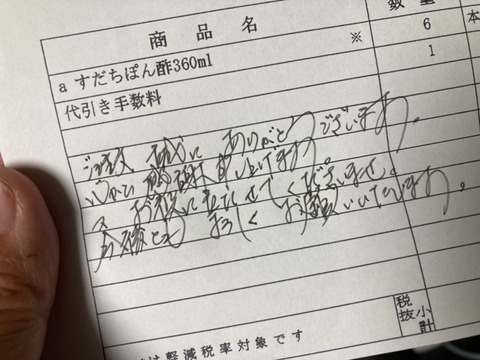 商品名 数量
a すだちぽん酢360ml ※ 6 本
代引き手数料 1
ご注文 誠に ありがとうございます。
申し上げます
お役に立たせてくださいませ。
今後とも よろしく お願いいたします。
税抜小計
は軽減税率対象です